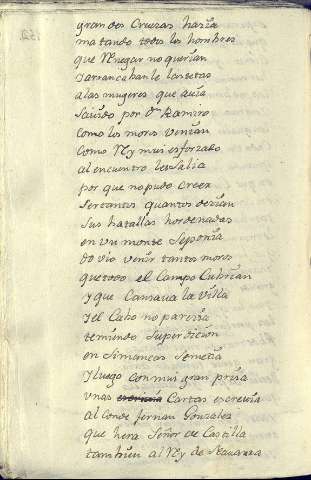 grandes Cruezas hazia
matando todos los hombres
que Renegar no querian
Yarrancabanle las tetas
alas mugeres que auia
Sauido por Dn Ramiro
como los moros venian
como Rey mui esforzado
al encuentro les Salia
por que no pudo creer
ser tantos quantos dezian
Sus batallas hordenadas
en un monte Seponia
do vio venir tantos moros
que todo el Campo Cubrian
y que Cansaua la Vista
y el Cabo no parezia
temiendo Superdicion
en Simancas Semetia
Y luego con mui gran prisa
unas Cartas escreuia
al Conde fernan Gonzales
que hera Señor de Castilla
tambien al Rey de Nauarra